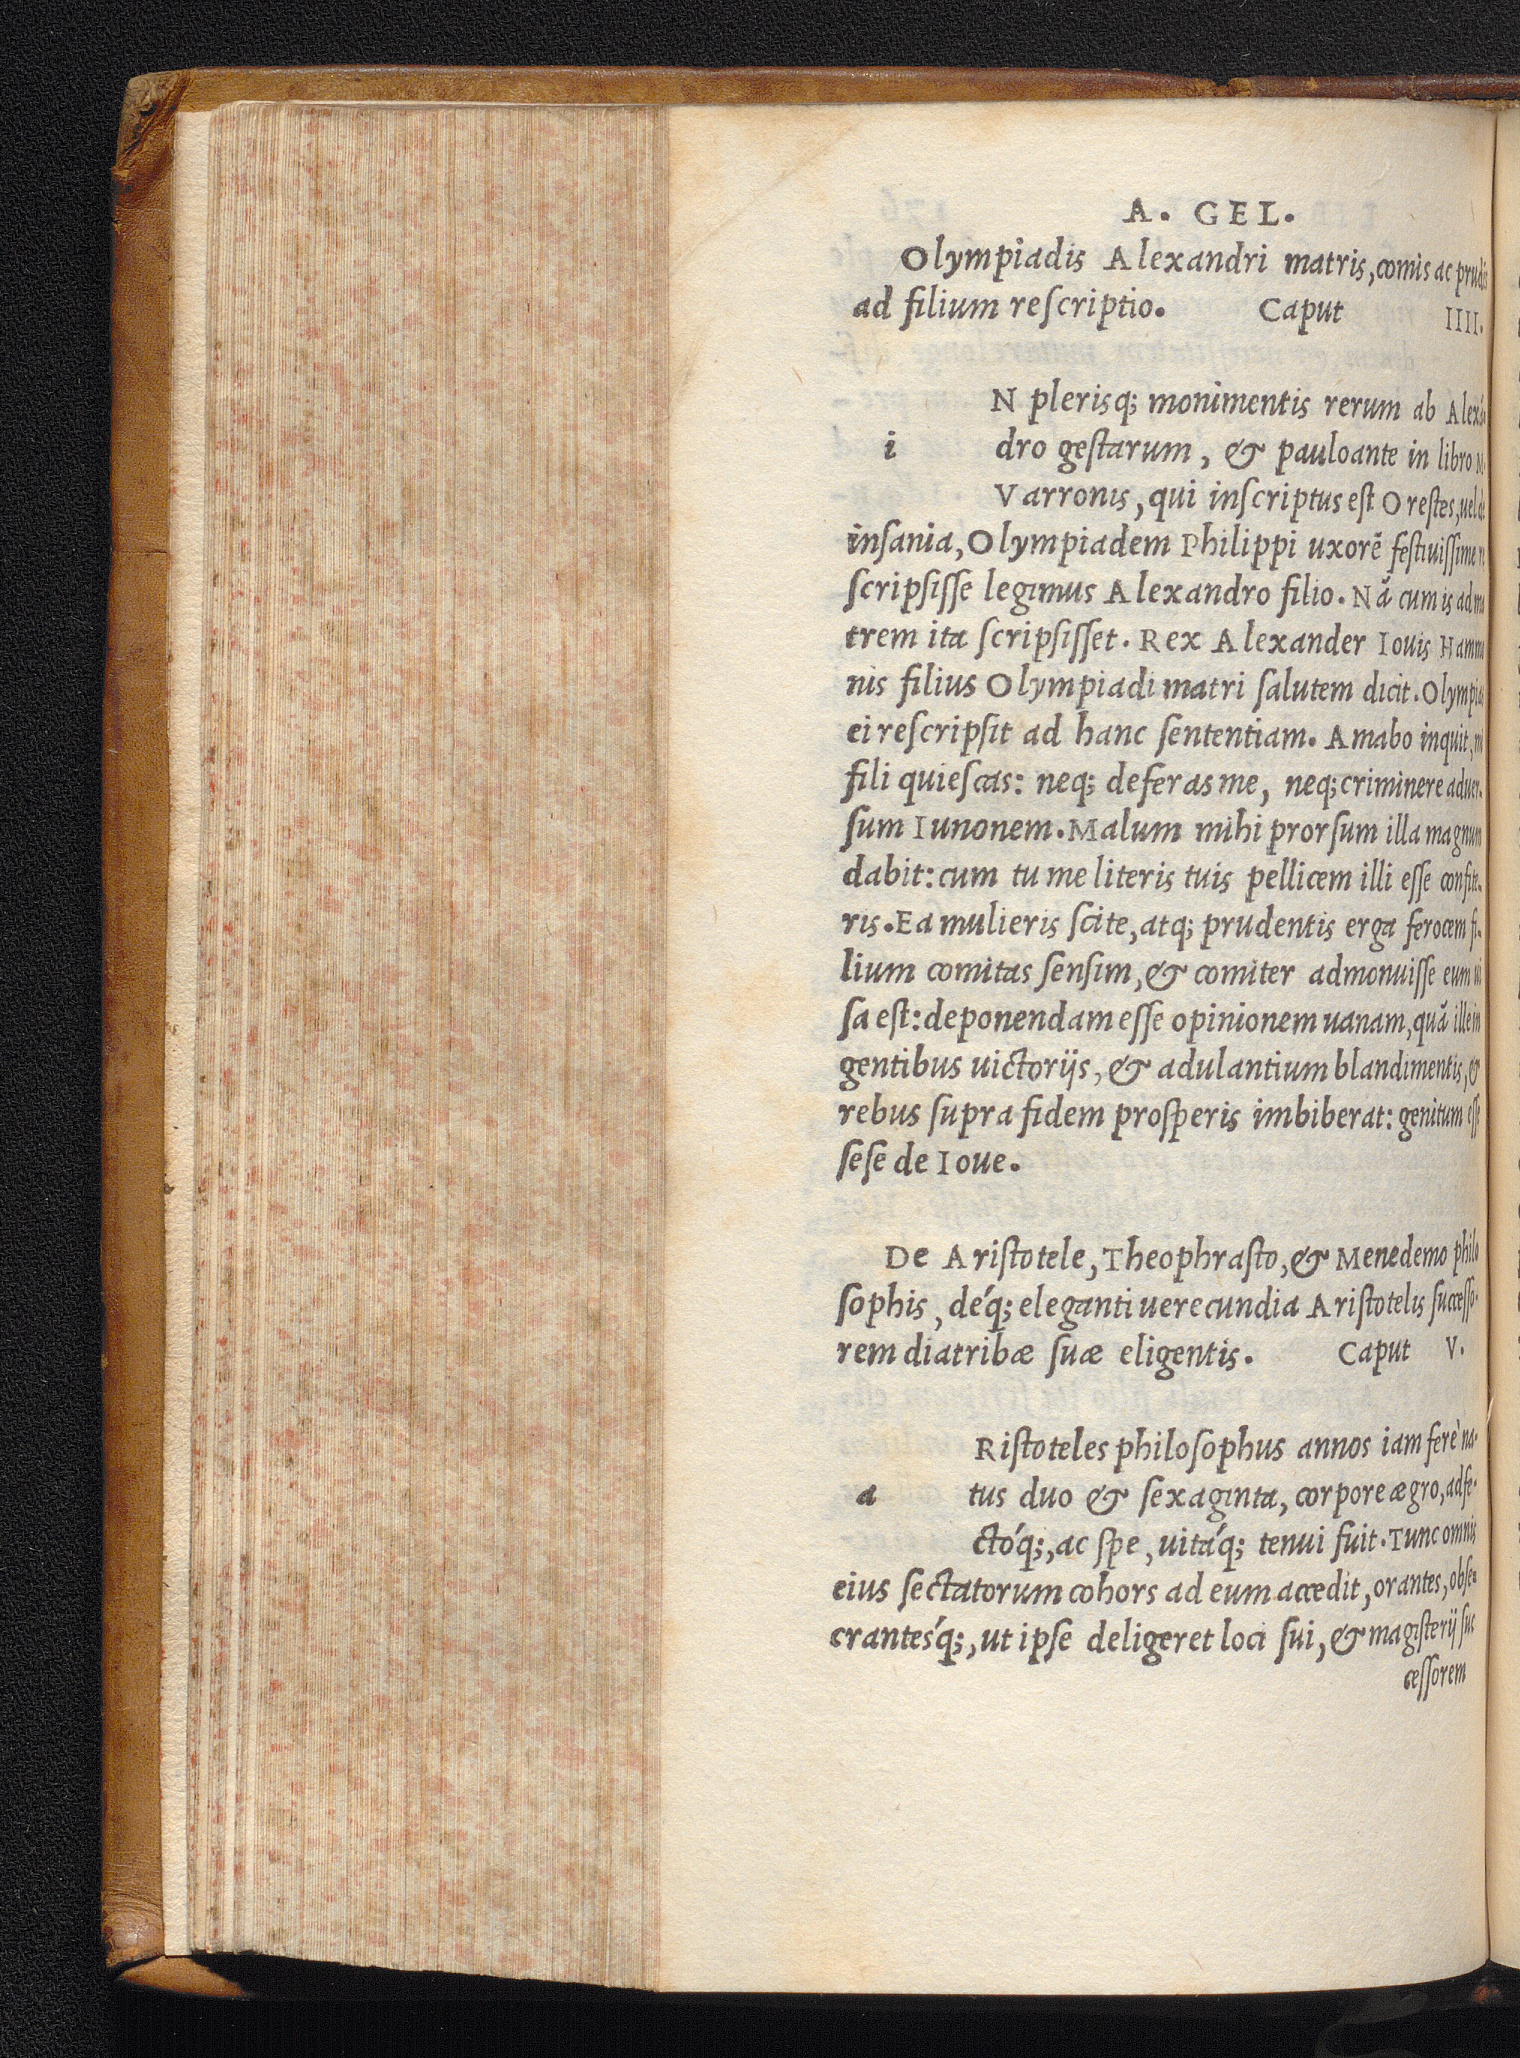 A. GEL.
Olympiadis Alexandri matris, comis ac prudēs
ad filium reſcriptio. Caput IIII.
N plerisq; monimentis rerum ab Alexā
i dro geſtarum, & pauloante in libro M.
Varronis, qui inſcriptus eſt Oreſtes, uel de
inſania, Olympiadem Philippi uxorē feſtiuiſſime re
ſcripſiſſe legimus Alexandro filio. Nā cum is ad ma
trem ita ſcripſiſſet. Rex Alexander Iouis Hammo
nis filius Olympiadi matri ſalutem dicit. Olympias
ei reſcripſit ad hanc ſententiam. Amabo inquit, mi
fili quieſcas: neq; deferas me, neq; criminere aduer-
ſum Iunonem. Malum mihi prorſum illa magnum
dabit: cum tu me literis tuis pellicem illi eſſe confite-
ris. Ea mulieris ſcite, atq; prudentis erga ferocem fi-
lium comitas ſenſim, & comiter admonuiſſe eum ui
ſa eſt: deponendam eſſe opinionem uanam, quā ille in
gentibus uictorijs, & adulantium blandimentis, &
rebus ſupra fidem proſperis imbiberat: genitum eſſe
ſeſe de Ioue.
De Ariſtotele, Theophraſto, & Menedemo philo
ſophis, déq; eleganti uerecundia Ariſtotelis ſucceſſo-
rem diatribæ ſuæ eligentis. Caput V.
Riſtoteles philoſophus annos iam ferè na-
a tus duo & ſexaginta, corpore ægro, adfe-
ctóq;, ac ſpe, uitáq; tenui fuit. Tunc omnis
eius ſectatorum cohors ad eum accedit, orantes, obſe-
crantesq́;, ut ipſe deligeret loci ſui, & magiſterij ſuc
ceſſorem